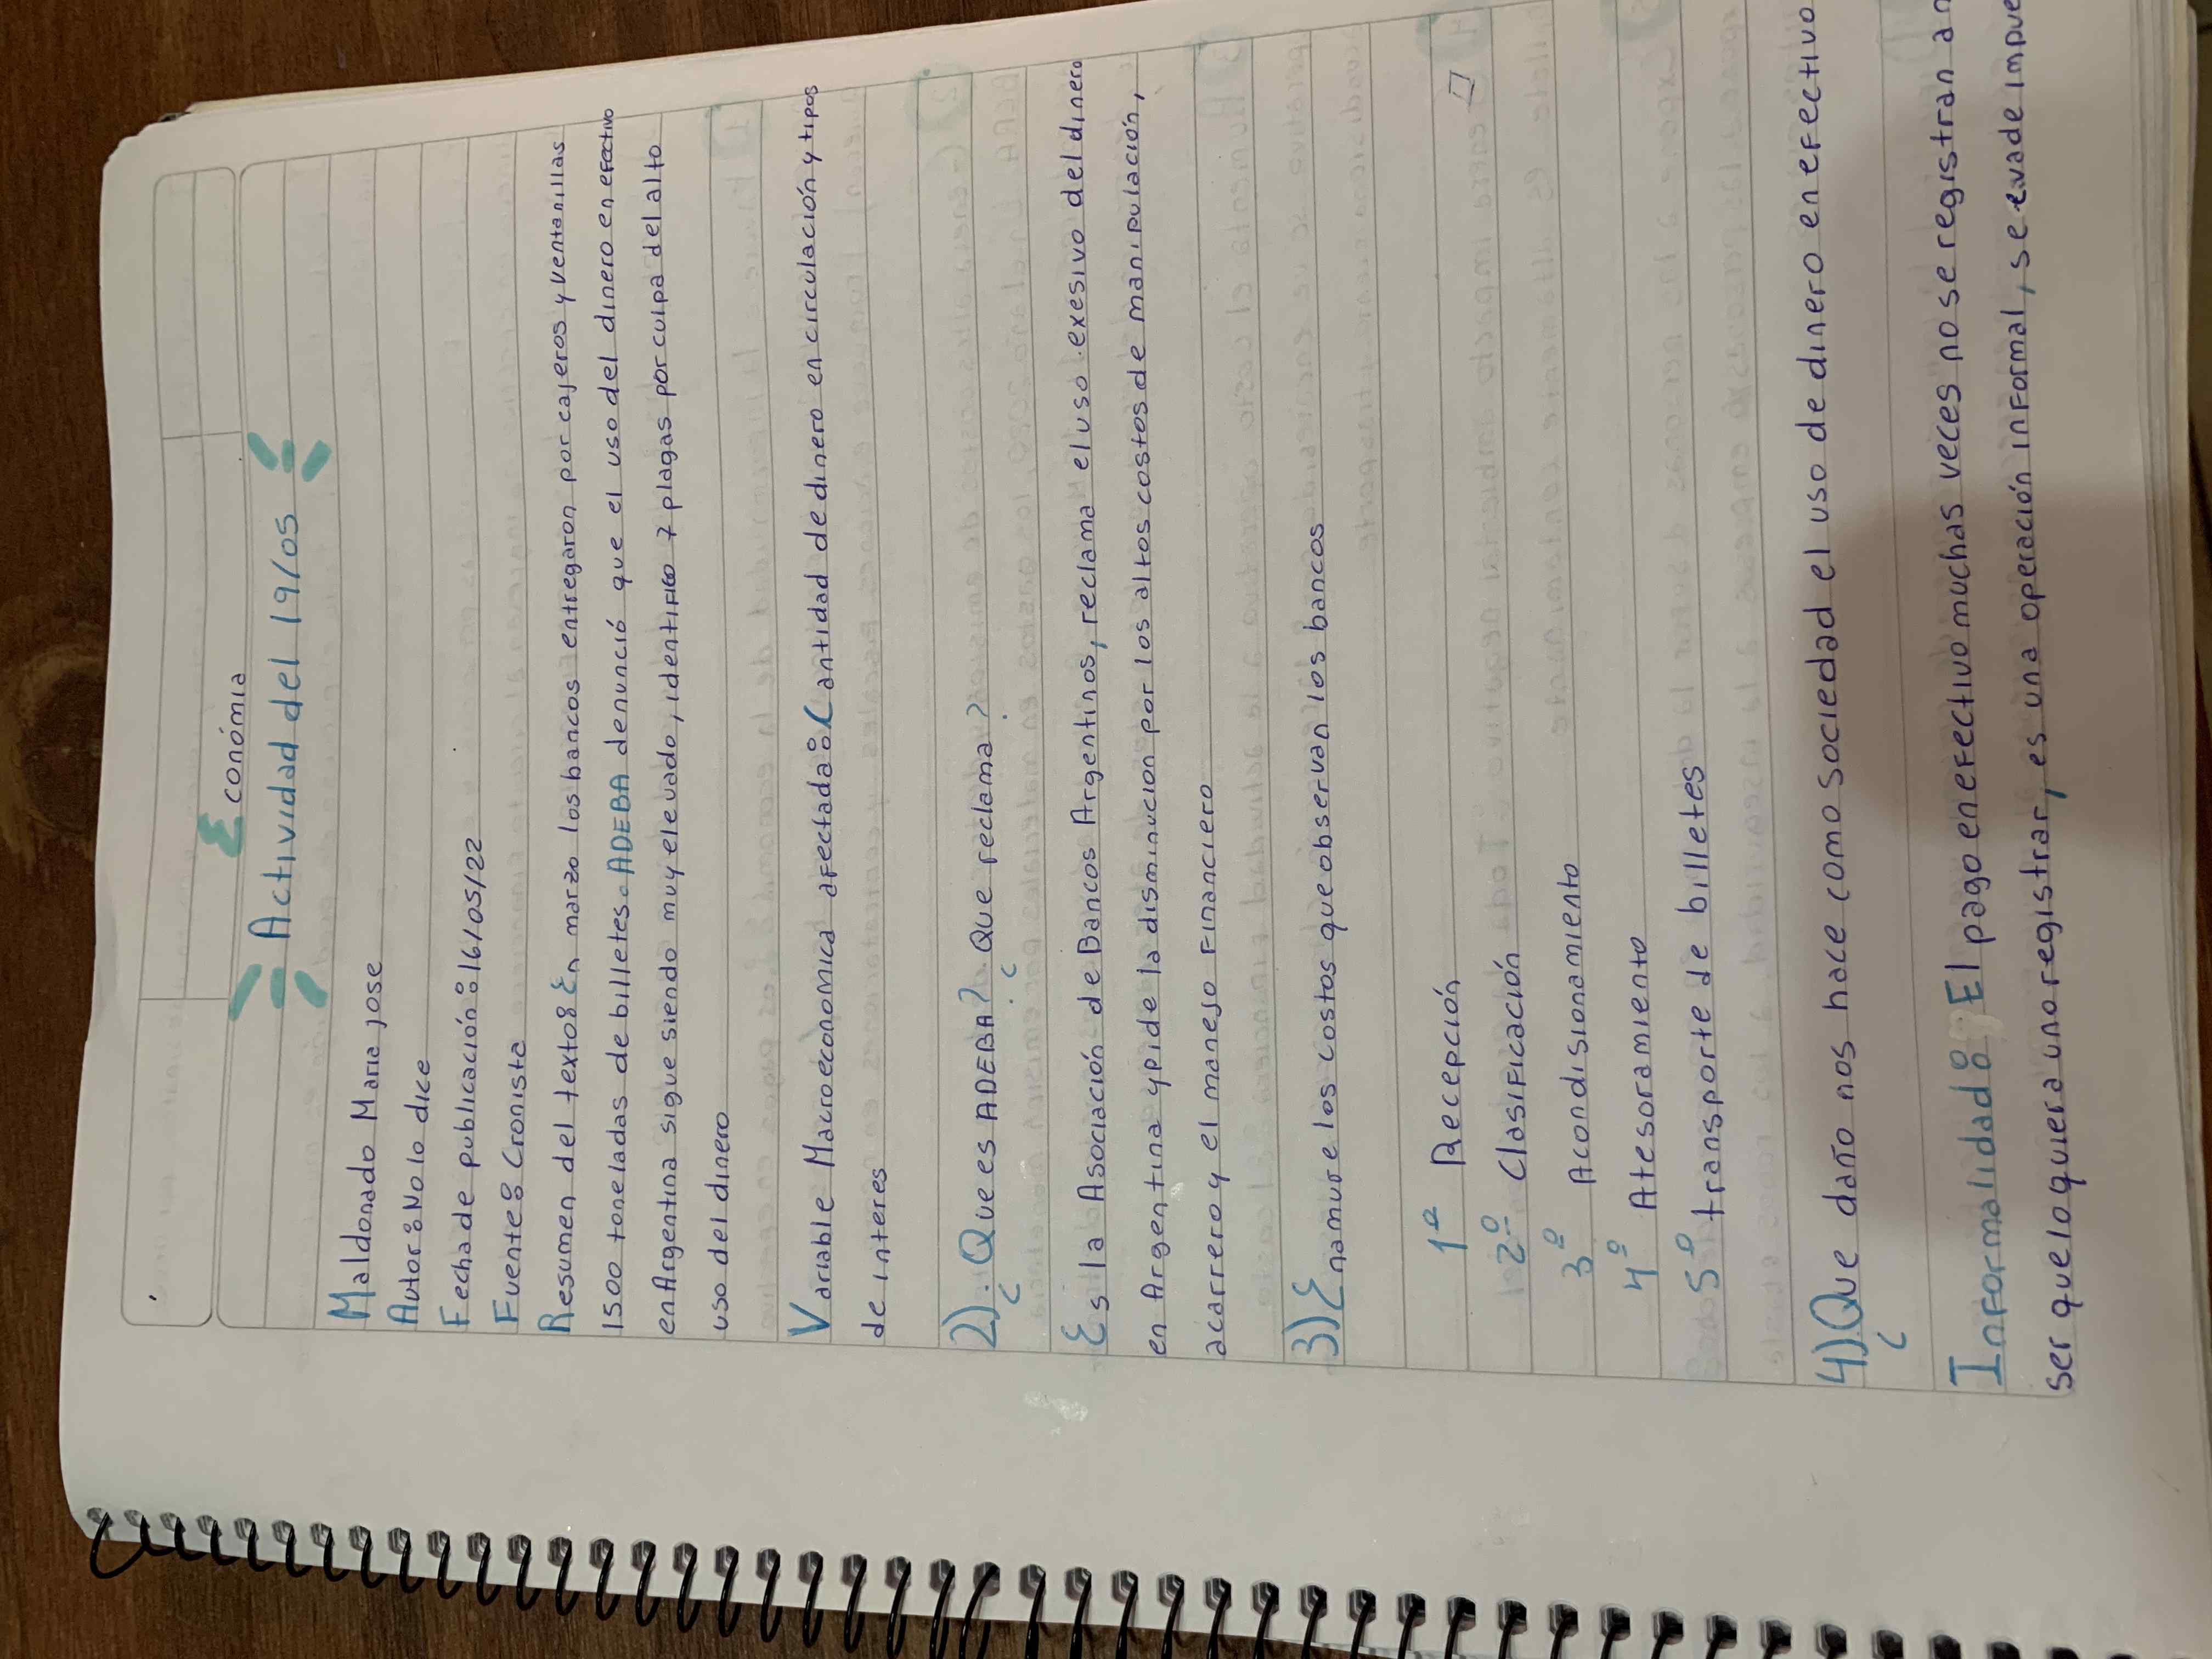 Económia
Actividad del 19/05
Maldonado Maria jose
Autor: No lo dice
Fecha de publicación: 16/05/22
Fuente: Cronista
Resumen del texto: En marzo los bancos entregaron por cajeros y ventanillas
1500 toneladas de billetes. ADEBA denunció que el uso del dinero en efectivo
en Argentina sigue siendo muy elevado, identifico 7 plagas por culpa del alto
uso del dinero
Variable Macroeconomica afectada: Cantidad de dinero en circulación y tipos
de interes
2). ¿Que es ADEBA? ¿Que reclama?
Es la Asociación de Bancos Argentinos, reclama el uso exesivo del dinero
en Argentina y pide la disminucion por los altos costos de manipulación,
acarrero y el manejo Financiero
3) Enamure los costos que observan los bancos
1º Recepción
2º Clasificación
3º Acondisionamiento
4º Atesoramiento
5º transporte de billetes
4) ¿Que daño nos hace como sociedad el uso de dinero en efectivo
Informalidad: El pago en efectivo muchas veces no se registran
ser que lo quiera uno registrar, es una operación informal, se evade